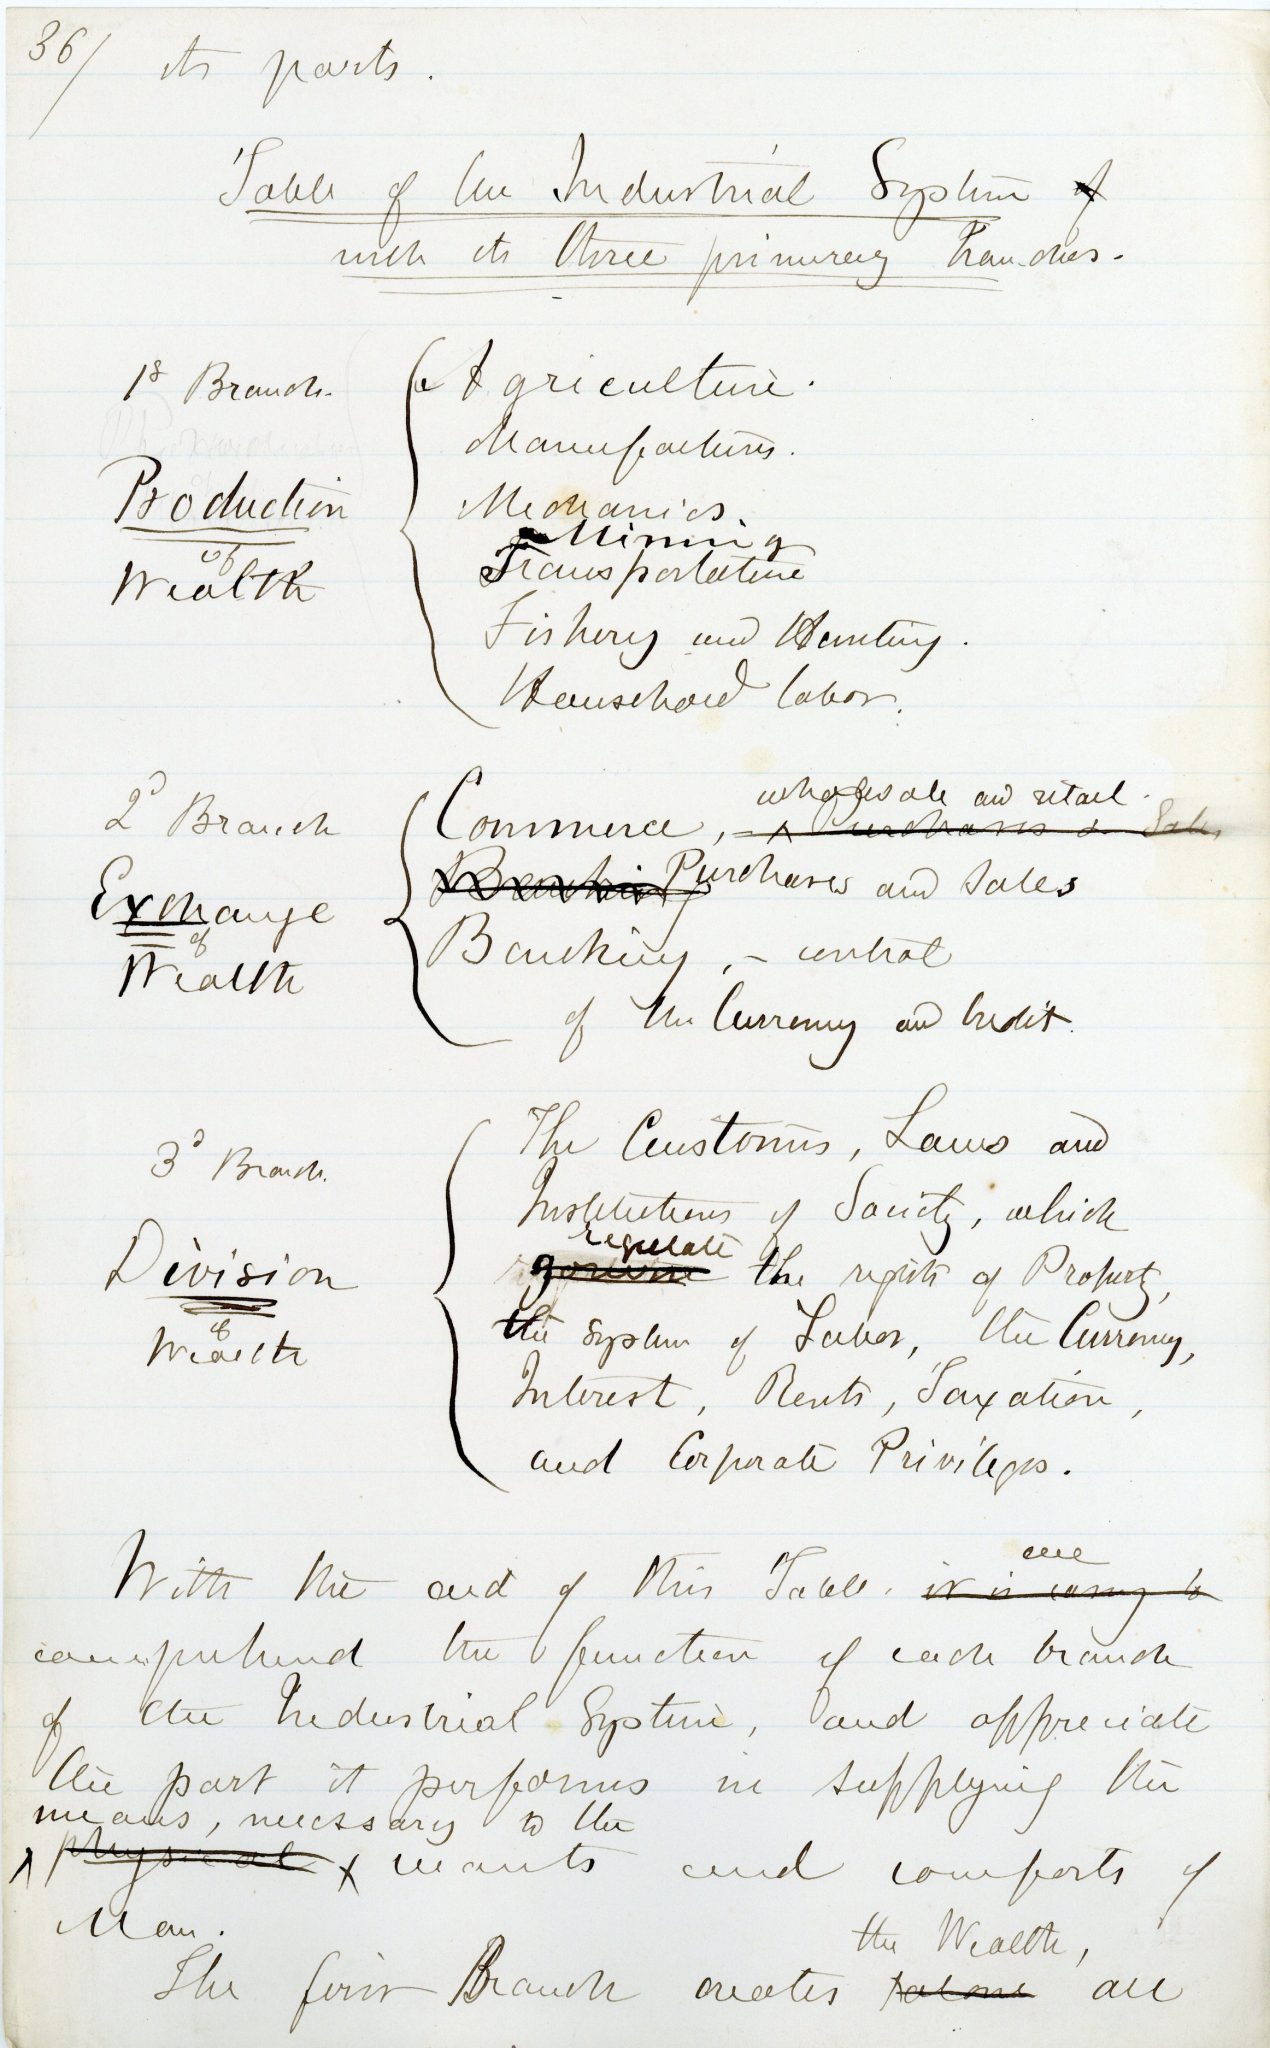 36/ its parts.
Table of the Industrial System of
with its three primary Branches.
1st Branch.
Production
of
Wealth
Agriculture.
Manufactures.
Mechanics.
Mining
Transportation
Fishery and Hunting.
Household labor.
2d Branch
Exchange
of
Wealth
wholesale and retail.
Commerce, – Purchases & Sales
Banking Purchases and Sales
Banking, – control
of the Currency and Credit.
3d Branch.
Division
of
Wealth
The Customs, Laws and
Institutions of Society, which
regulate
govern the rights of Property,
the system of Labor, the Currency,
Interest, Rents, Taxation,
and Corporate Privileges.
we
With the aid of this Table. it is easy to
comprehend the function of each branch
of the Industrial System, and appreciate
the part it performs in supplying the
means, necessary to the
physical wants and comforts of
Man.
the Wealth,
The first Branch creates alone all